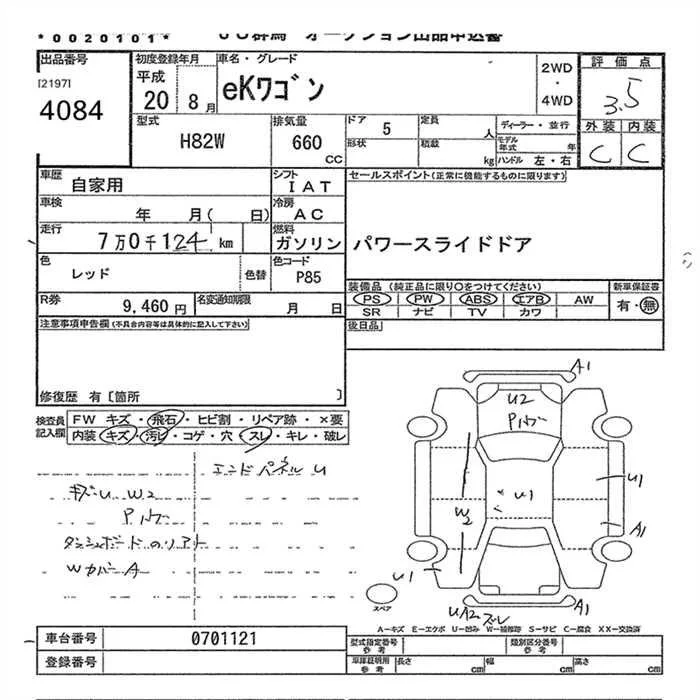 *0020101*
JU群馬 オークション出品申込書
出品番号
[2197]
4084
初度登録年月
平成
20 8月
車名・グレード
eKワゴン
2WD
・
4WD
評価点
3.5
外装 内装
C C
型式
H82W
排気量
660
CC
ドア 5
形状
定員
人
積載
kg
ディーラー・並行
モデル年式 年
ハンドル 左・右
車歴
自家用
シフト
IAT
車検
年 月( 日)
冷房
AC
走行
7万0千124 km
燃料
ガソリン
色
レッド
色替
色コード
P85
R券
9,460円
名変通知期限
月 日
セールスポイント(正常に機能するものに限ります)
パワースライドドア
装備品(純正品に限り○をつけてください)
PS PW ABS エアB AW
SR ナビ TV カワ
新車保証書
有・無
後日品
注意事項申告欄(不具合内容等は具体的に記入して下さい)
修復歴 有〔箇所 〕
検査員記入欄
FW キズ・飛石・ヒビ割・リペア跡・×要
内装・キズ・汚レ・コゲ・穴・スレ・キレ・破レ
エンドパネルU
キズU W2
ダッシュボードのリアト
WカバーA
A1
U2
U1
U1
W2
A1
U1
UA2ズレ
A1
スペア
A―キズ E―エクボ U―凹み W―補修跡 S―サビ C―腐食 XX―交換済
車台番号
0701121
登録番号
型式指定番号
参考
類別区分番号
参考
車庫証明用
参考
長さ cm
幅 cm
高さ cm